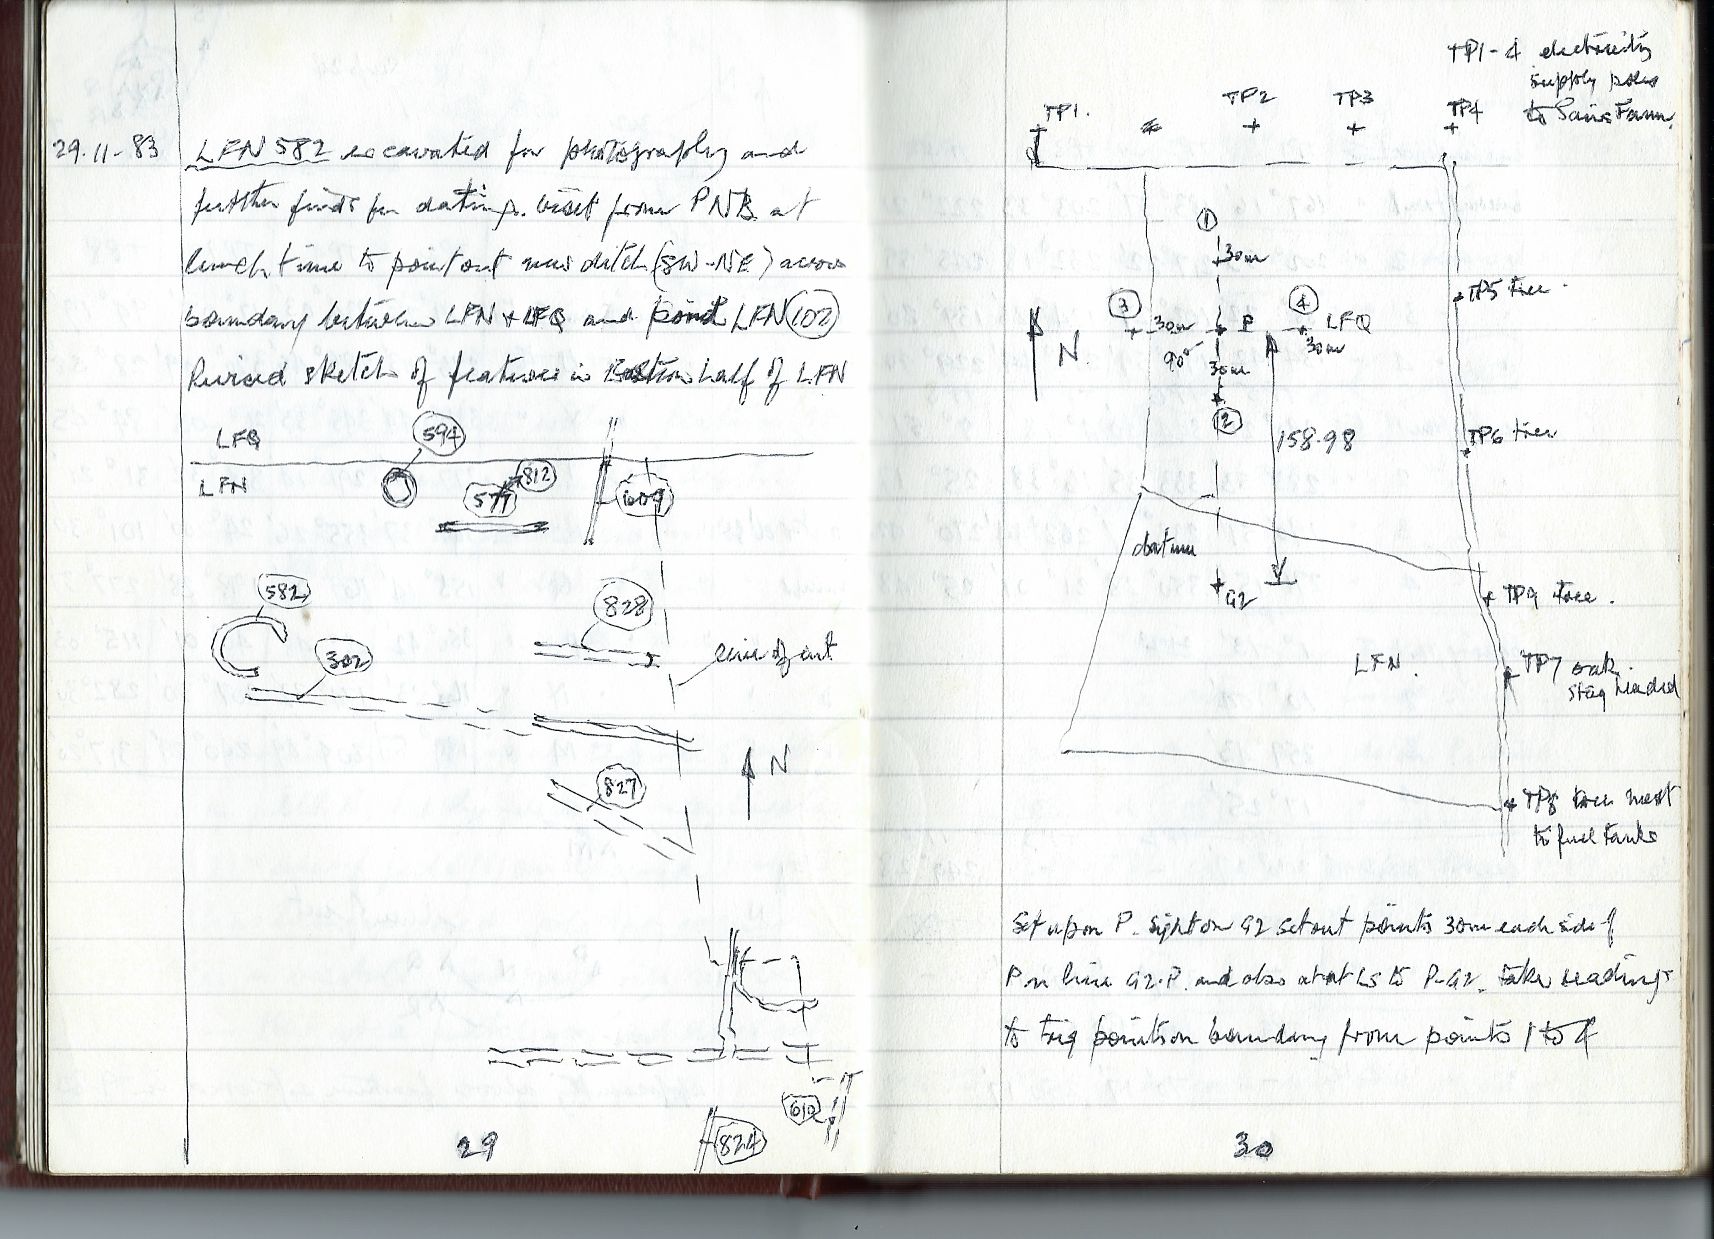 29.11-83
LFN 582 excavated for photography and
further finds for dating. Visit from PNB at
lunch time to point out new ditch (SW-NE) across
boundary between LFN + LFQ and pond LFN 102
Revised sketch of features in Eastern half of LFN
LFQ
594
LFN
812
577
609
582
828
302
line of cut
N
827
610
824
29
TP1-4 electricity
supply poles
to Sains Farm.
TP1.
TP2
TP3
TP4
1
30m
TP5 tree.
3
4
30m
P
LFQ
N.
90°
30m
30m
2
158.98
TP6 tree
datum
G2
TP9 tree.
LFN.
TP7 oak.
stag headed
TP8 tree next
to fuel tanks
Set up on P. sight on G2 set out points 30m each side of
P on line G2.P. and also at rt Ls to P-G2. take readings
to trig points on boundary from points 1 to 4
30